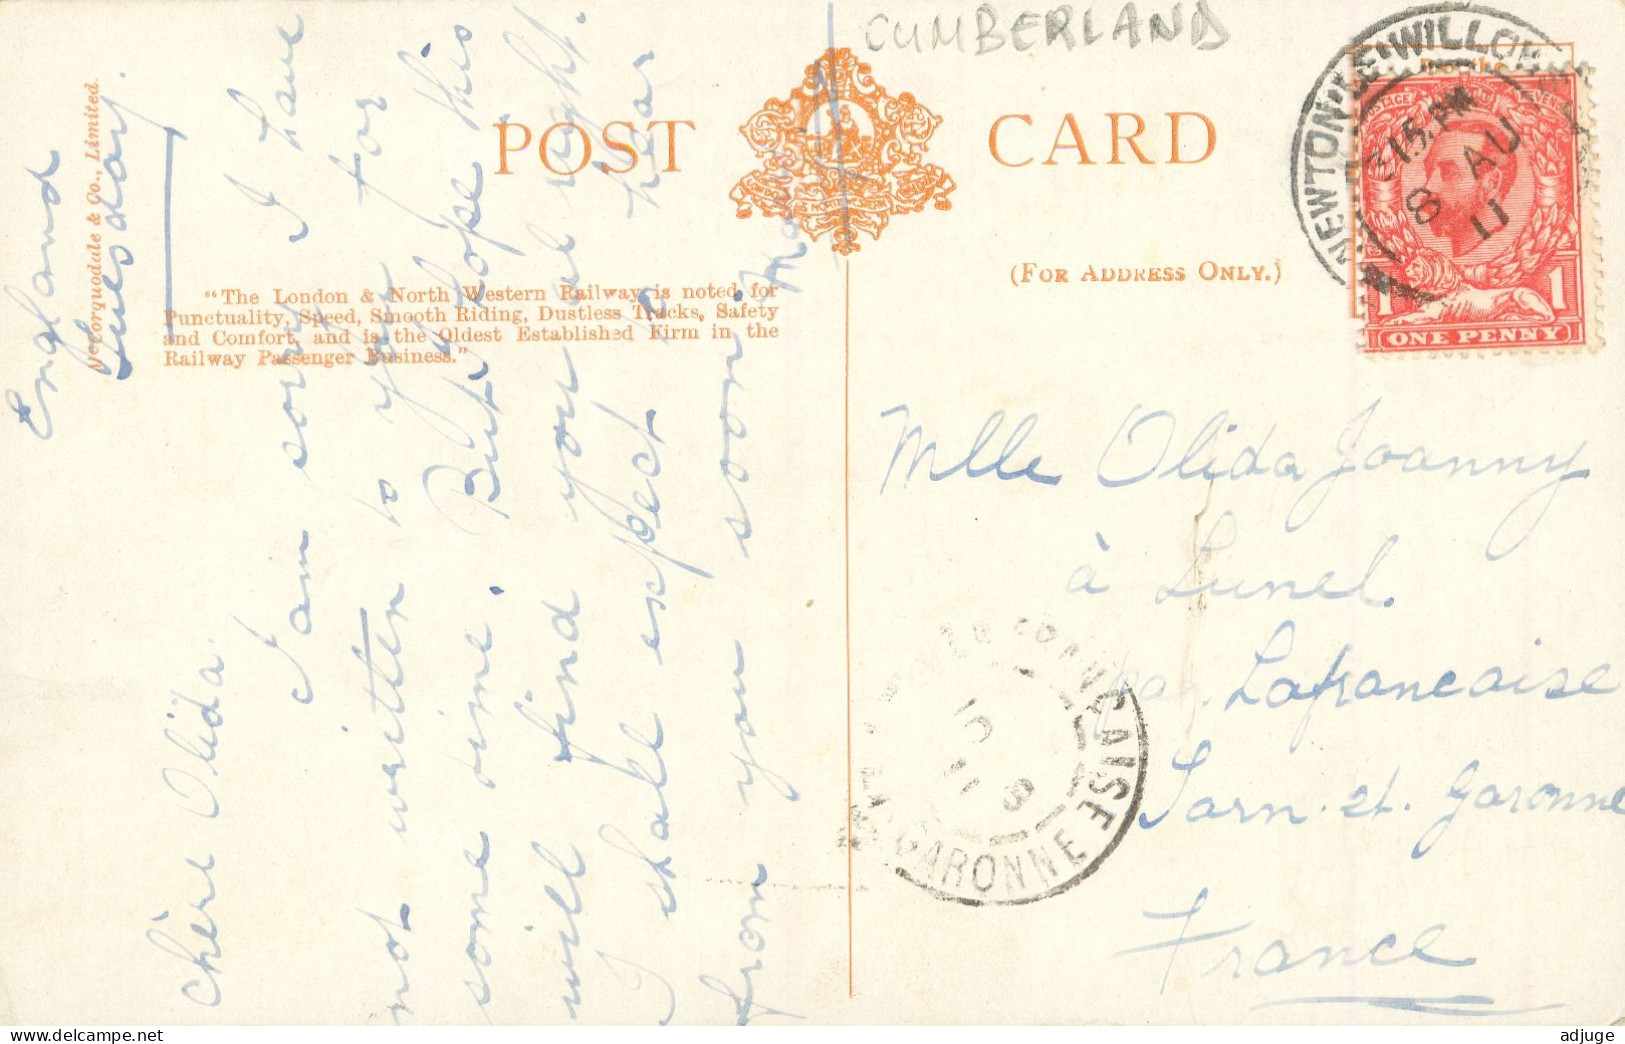 CUMBERLAND
POST CARD
(FOR ADDRESS ONLY.)
McCorquodale & Co., Limited.
"The London & North Western Railway is noted for
Punctuality, Speed, Smooth Riding, Dustless Tracks, Safety
and Comfort, and is the Oldest Established Firm in the
Railway Passenger Business."
England
Tuesday.
Chère Olida.
I am sorry I have
not written to you for
some time. But I hope this
will find you al right.
I shall expect to hear
from you soon.
NEWTON-LE-WILLOWS
815 PM
8 AU
11
POSTAGE REVENUE
1 1
ONE PENNY
Mlle Olida Joanny
à Lunel
par Lafrancaise
Tarn. et. Garonne
France
FRANCAISE
10
8
11
GARONNE
adjuge